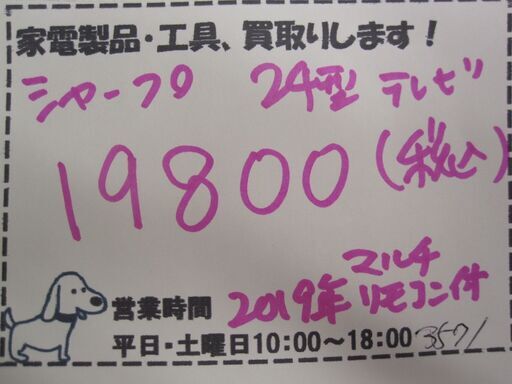 家電製品・工具、買取りします！
シャープ 24型 テレビ
19800(税込)
マルチ
営業時間 2019年 リモコン付
平日・土曜日10:00～18:00 3571